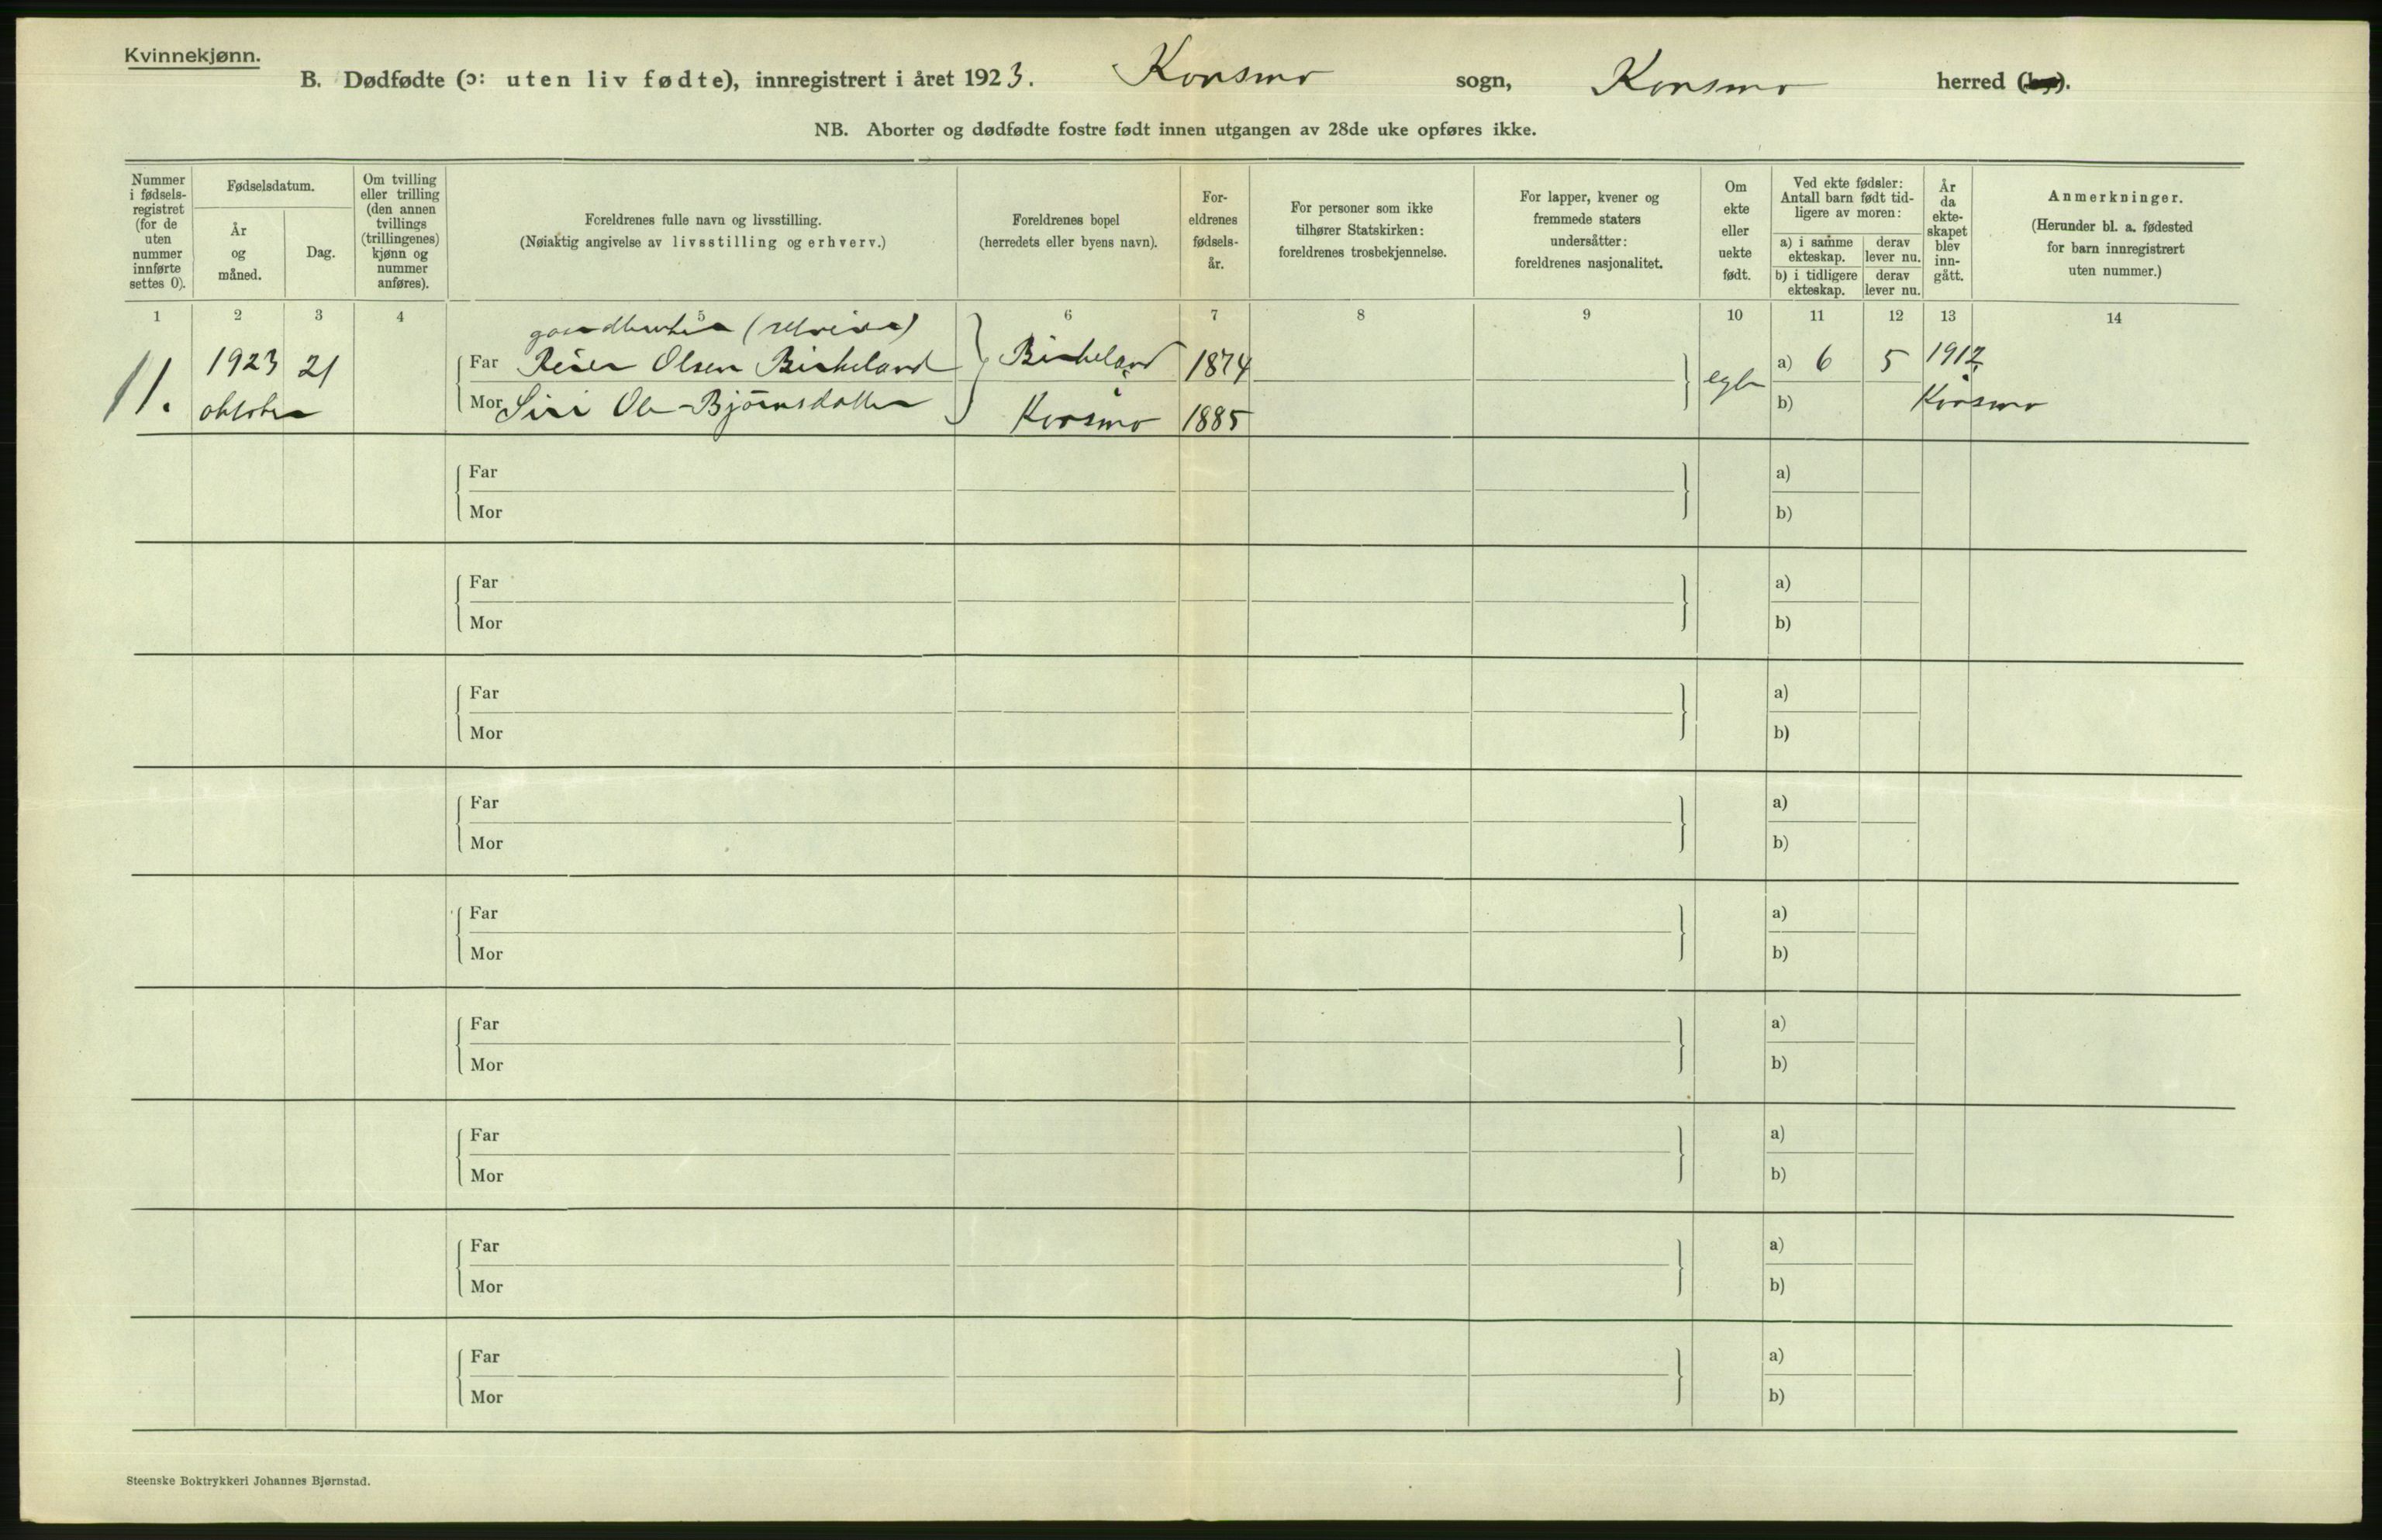 Kvinnekjønn.
B. Dødfødte (ɔ: uten liv fødte), innregistrert i året 1923. Konsmo sogn, Konsmo herred
NB. Aborter og dødfødte fostre født innen utgangen av 28de uke opføres ikke.
Nummer i fødsels-registret (for de uten nummer innførte settes 0).
Fødselsdatum.
År og måned.
Dag.
Om tvilling eller trilling (den annen tvillings (trillingenes) kjønn og nummer anføres).
Foreldrenes fulle navn og livsstilling.
(Nøiaktig angivelse av livsstilling og erhverv.)
Foreldrenes bopel
(herredets eller byens navn).
For-eldrenes fødsels-år.
For personer som ikke tilhører Statskirken: foreldrenes trosbekjennelse.
For lapper, kvener og fremmede staters undersåtter: foreldrenes nasjonalitet.
Om ekte eller uekte født.
Ved ekte fødsler: Antall barn født tid-ligere av moren:
a) i samme ekteskap.
derav lever nu.
b) i tidligere ekteskap.
derav lever nu.
År da ekte-skapet blev inn-gått.
Anmerkninger.
(Herunder bl. a. fødested for barn innregistrert uten nummer.)
1 2 3 4 5 6 7 8 9 10 11 12 13 14
gaardbruker (selveier)
11. 1923 21 Far Reier Olsen Birkeland Birkeland 1874 a) 6 5 1912
oktober Mor Siri Ole-Bjørnsdatter Konsmo 1885 egte b) Konsmo
Far a)
Mor b)
Far a)
Mor b)
Far a)
Mor b)
Far a)
Mor b)
Far a)
Mor b)
Far a)
Mor b)
Far a)
Mor b)
Far a)
Mor b)
Far a)
Mor b)
Steenske Boktrykkeri Johannes Bjørnstad.